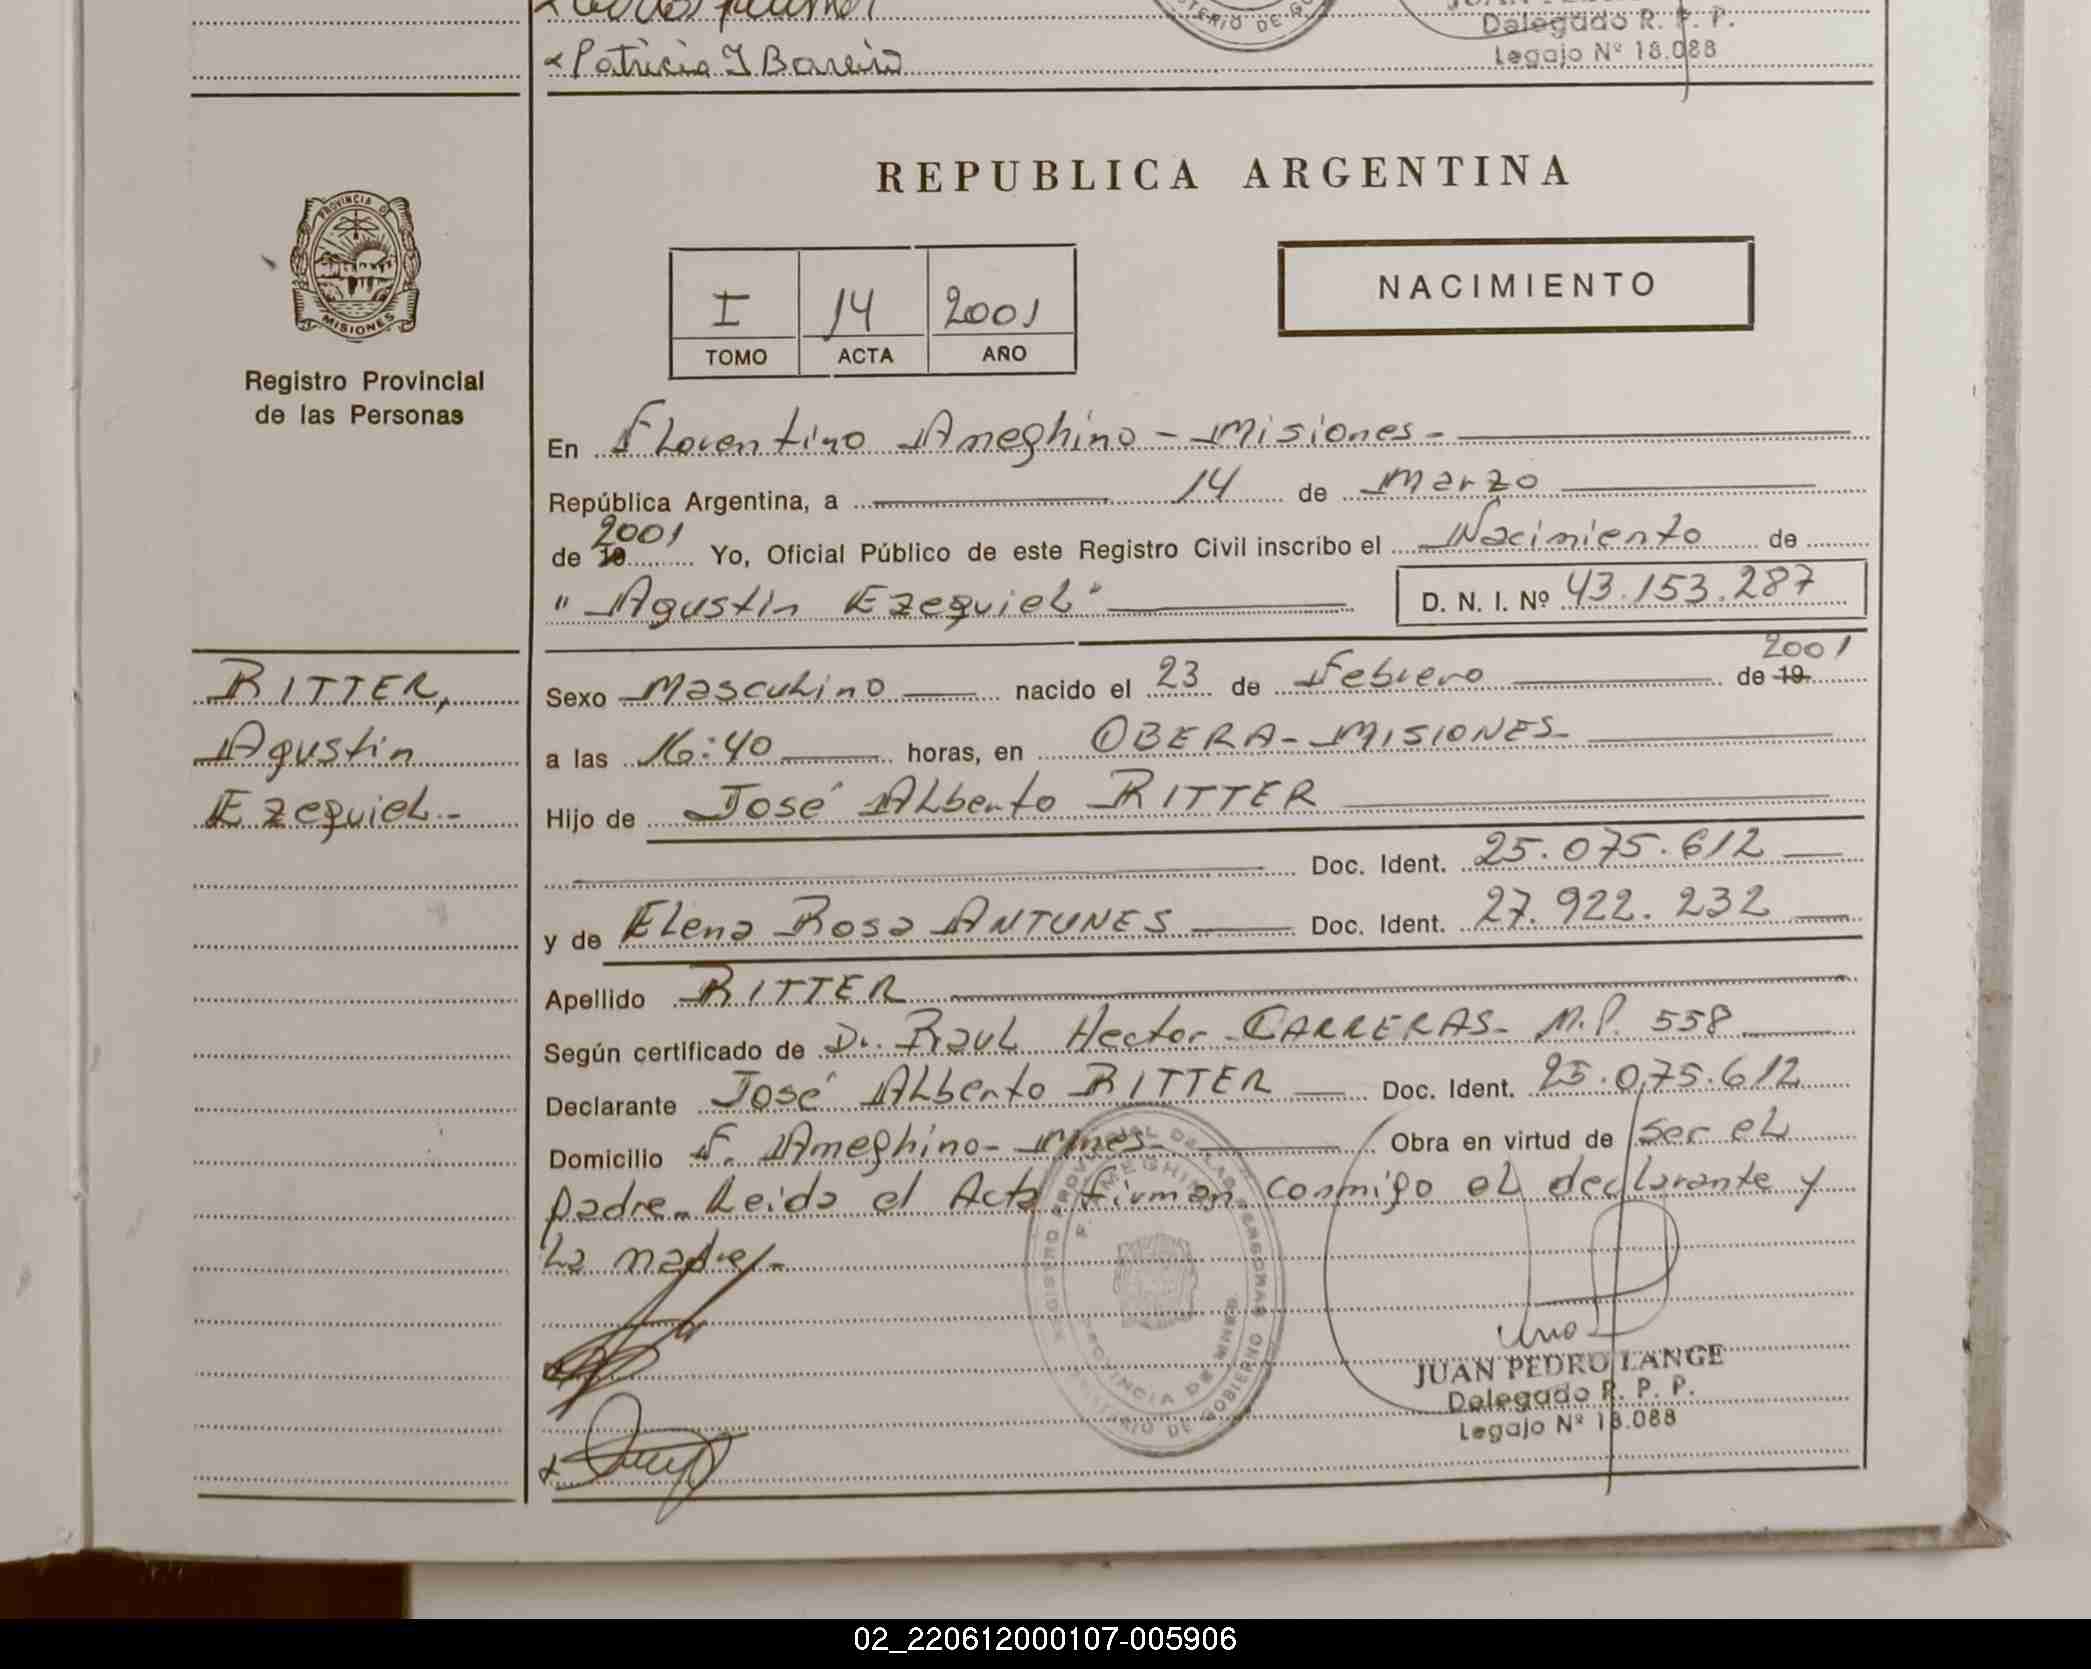 Patricia I Bareiro
MINISTERIO DE GO
Delegado R. P. P.
Legajo Nº 18.088
PROVINCIA D
MISIONES
Registro Provincial
de las Personas
REPUBLICA ARGENTINA
I 14 2001
TOMO ACTA AÑO
NACIMIENTO
En Florentino Ameghino - Misiones -
República Argentina, a 14 de Marzo
de 19 2001 Yo, Oficial Público de este Registro Civil inscribo el Nacimiento de
"Agustin Ezequiel" D. N. I. Nº 43.153.287
RITTER,
Agustin
Ezequiel.-
Sexo Masculino nacido el 23 de Febrero de 19 2001
a las 16:40 horas, en OBERA - MISIONES -
Hijo de José Alberto RITTER
Doc. Ident. 25.075.612
y de Elena Rosa ANTUNES Doc. Ident. 27.922.232
Apellido RITTER
Según certificado de Dr. Raul Hector CARRERAS - M.P. 558
Declarante José Alberto RITTER Doc. Ident. 25.075.612
Domicilio F. Ameghino - Mnes - Obra en virtud de ser el
padre. Leida el Acta firman conmigo el declarante y
La madre.-
REGISTRO PROVINCIAL DE LAS PERSONAS
F. AMEGHINO
PROVINCIA DE MNES.
MINISTERIO DE GOBIERNO
JUAN PEDRO LANGE
Delegado R. P. P.
Legajo Nº 18.088
02_220612000107-005906